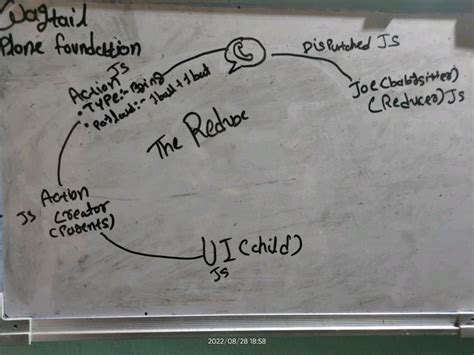 Wagtail
Plone foundation
JS
Action
• TYPE:- Bring
• Payload:- 1 bat + 1 bat
Dispatched JS
Joe (babysitter)
(Reducer) JS
The Redux
Action
JS Creator
(Parents)
UI (child)
JS
2022/08/28 18:58